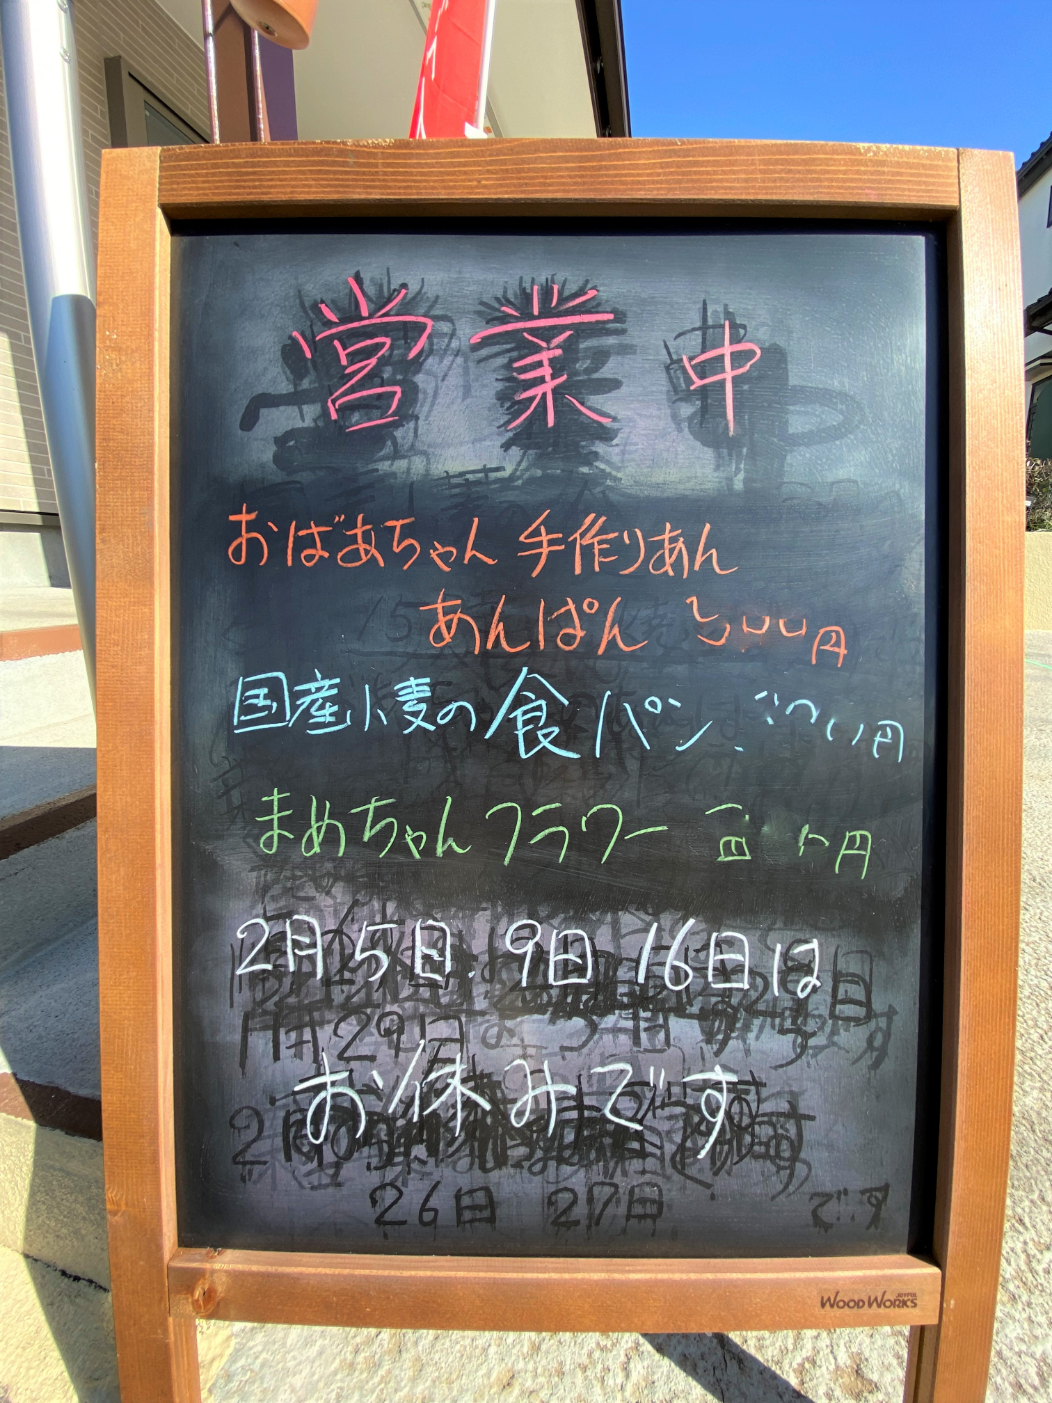 営業中
おばあちゃん手作りあん
あんぱん 円
国産小麦の食パン 円
まめちゃんフラワー 円
2月5日.9日 16日は
1月29日
お休みです
26日 27日 です
JOYFUL
WOOD WORKS